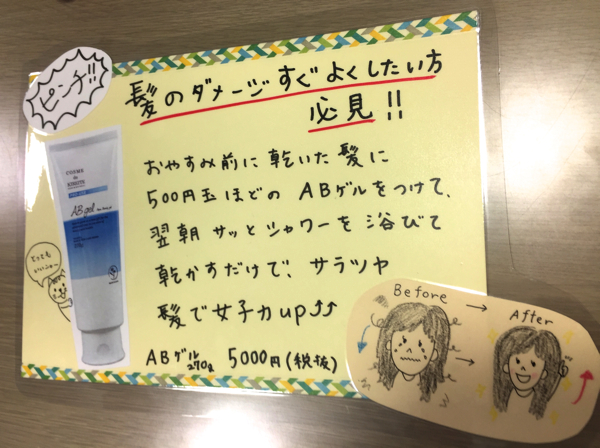 ピンチ!!
髪のダメージすぐよくしたい方
必見!!
おやすみ前に乾いた髪に
500円玉ほどの ABゲルをつけて、
翌朝 サッとシャワーを浴びて
乾かすだけで、サラツヤ
髪で女子力up⤴⤴
ABゲル 270g 5000円(税抜)
とっても
いいニャー
AB gel
Before → After
→